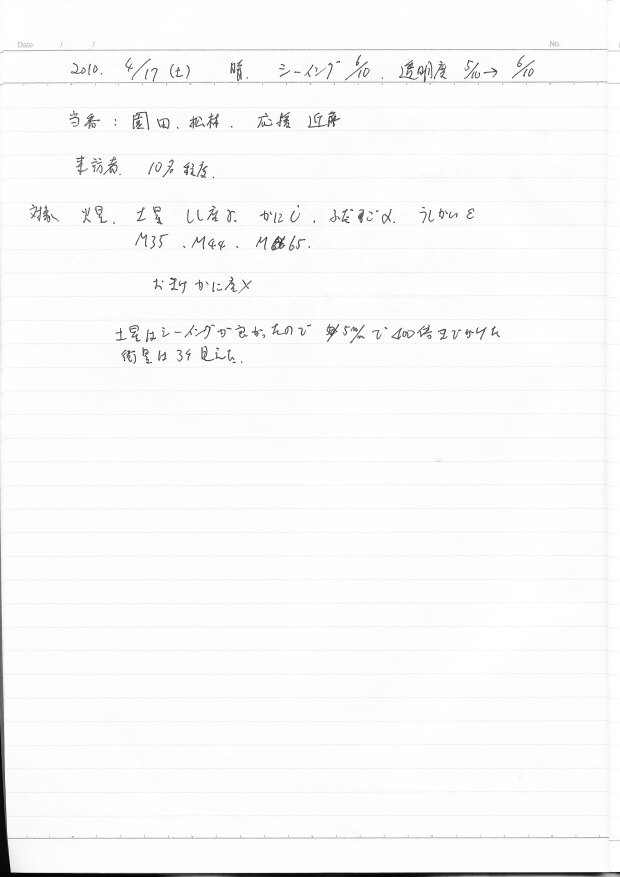 Date / / No.
2010. 4/17 (土) 晴. シーイング 6/10. 透明度 5/10 → 6/10
当番: 園田、松林. 応援 近藤
来訪者. 10名程度.
対象 火星. 土星 しし座γ. かにι. ふたご α. うしかい ε
M35. M44. M65.
おまけ かに座X
土星はシーイングが良かったので 5m/m で 400倍までかけた
衛星は3ケ見えた.